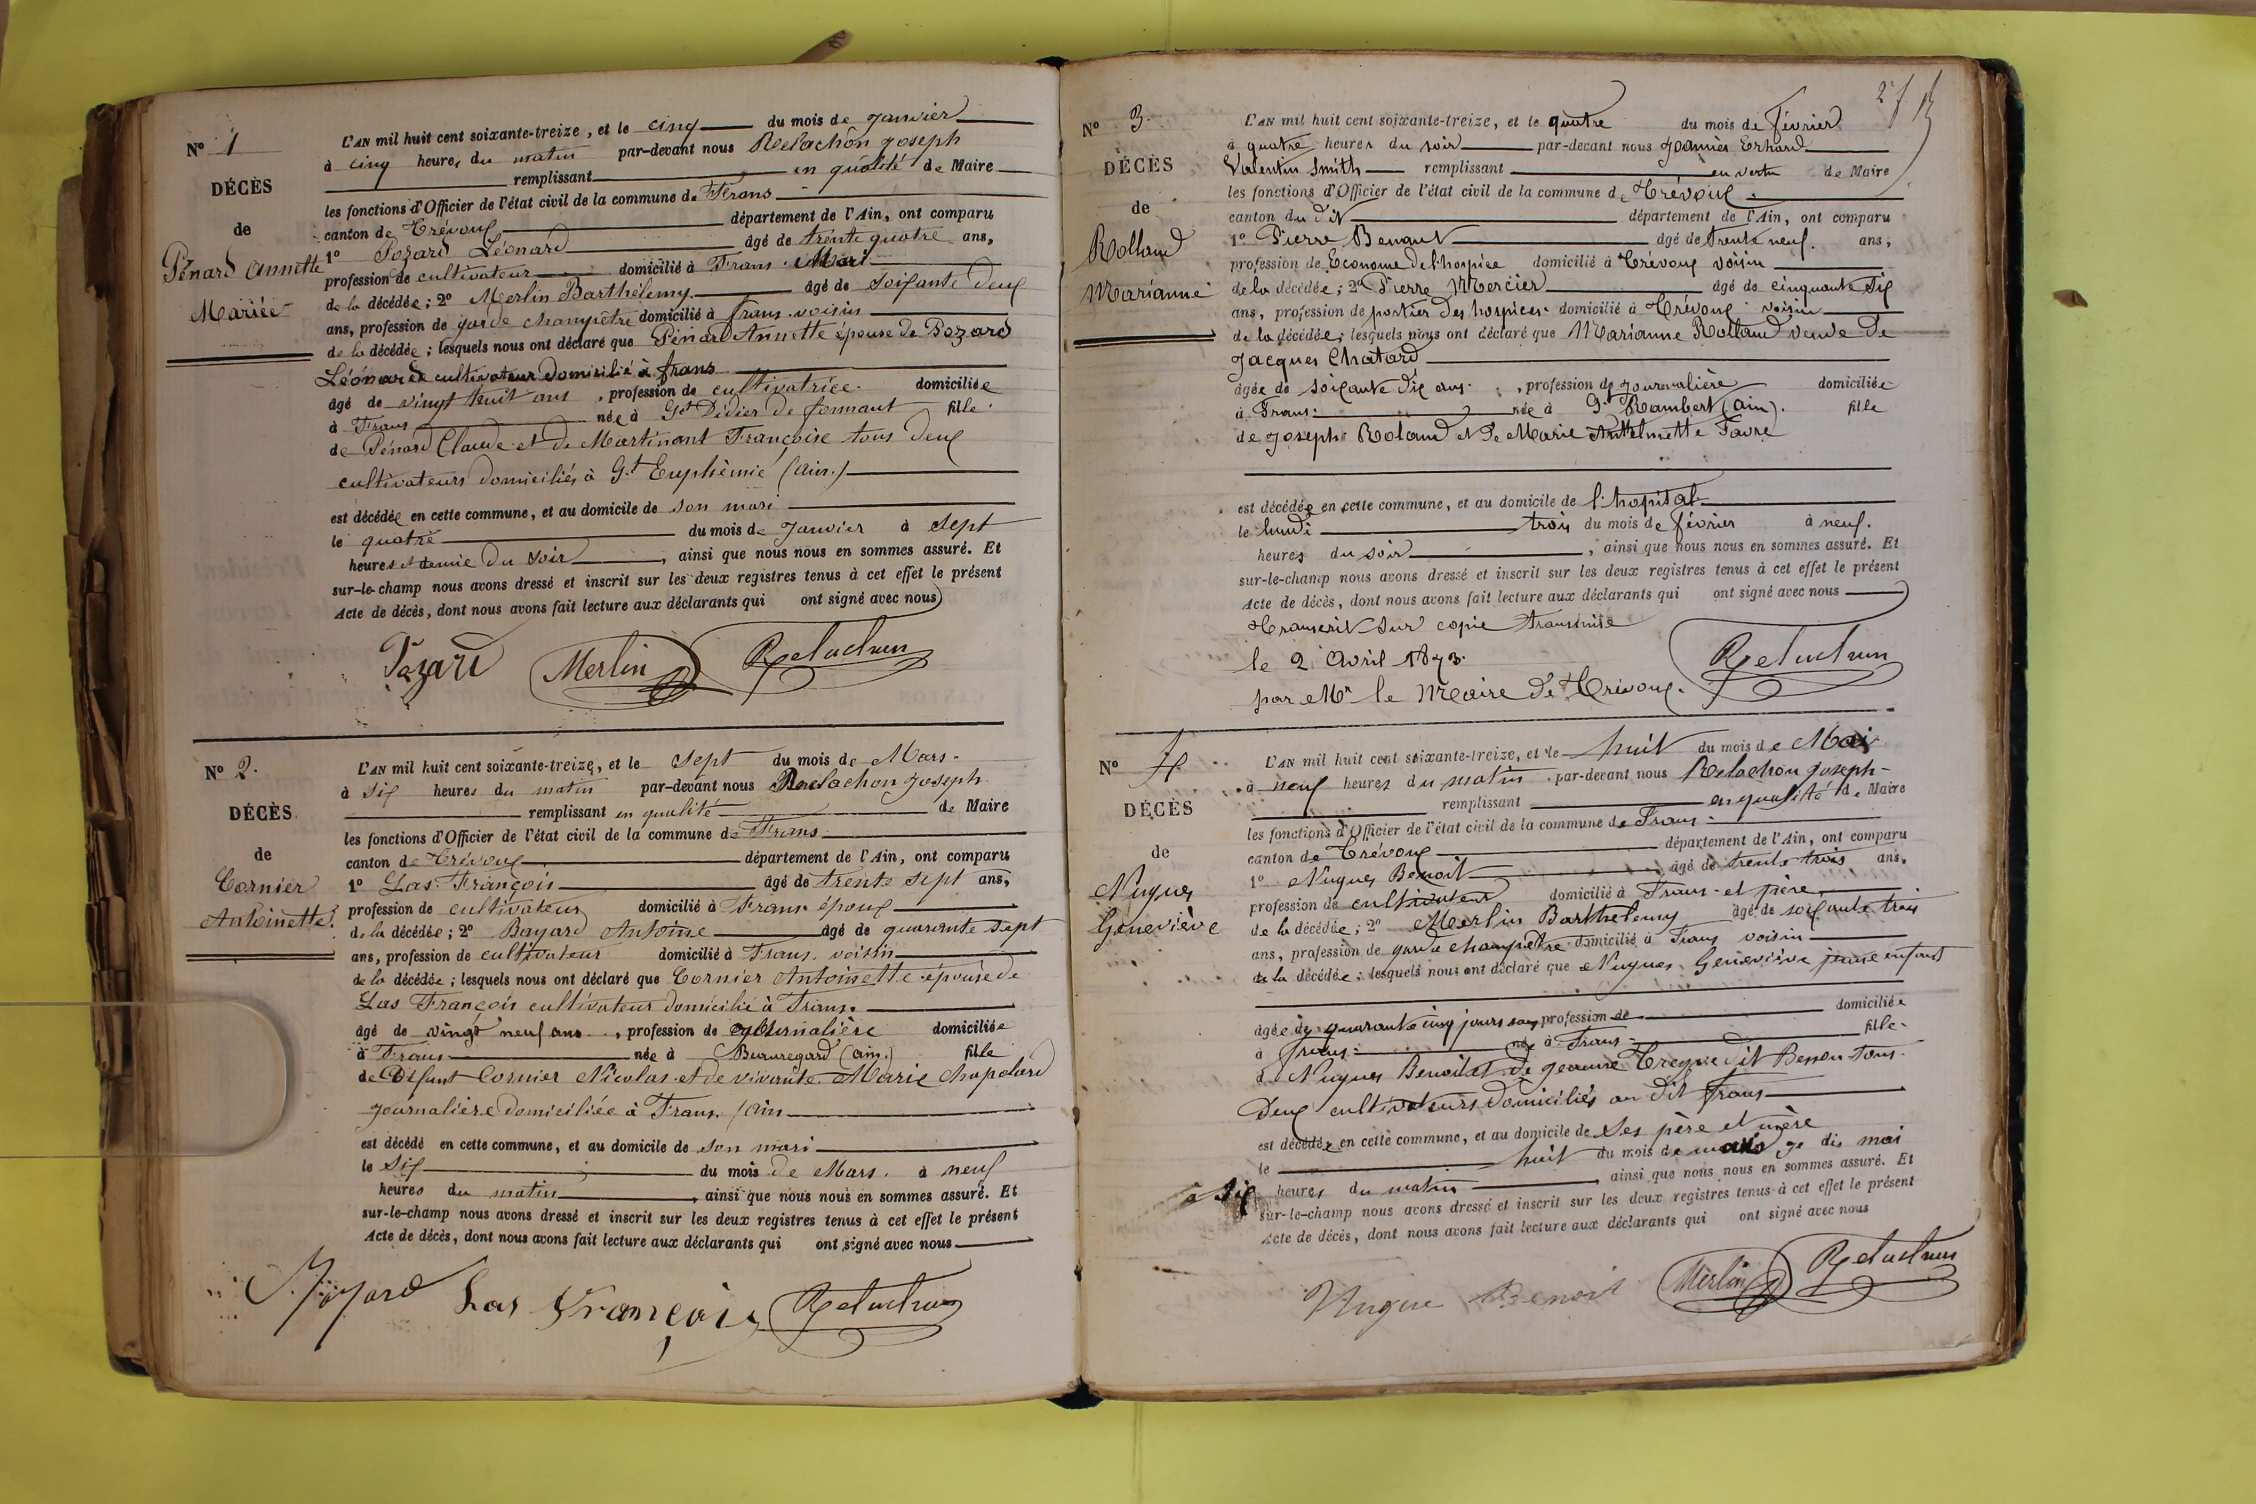 Nº 1
DÉCÈS
de
Pénard Annette
Mariée
L'AN mil huit cent soixante-treize, et le cinq du mois de Janvier
à cinq heures du matin par-devant nous Relachon Joseph
remplissant en qualité de Maire
les fonctions d'Officier de l'état civil de la commune de Frans
canton de Trévoux département de l'Ain, ont comparu
1º Pozard Léonard âgé de trente quatre ans,
profession de cultivateur domicilié à Frans Mari
de la décédée ; 2º Merlin Barthélemy âgé de soixante deux
ans, profession de garde champêtre domicilié à frans voisin
de la décédée ; lesquels nous ont déclaré que Pénard Annette épouse de Pozard
Léonard cultivateur domicilié à frans
âgé de vingt huit ans , profession de cultivatrice domiciliée
à Frans née à St Didier de formant fille
de Pénard Claude et de Martinant Françoise tous deux
cultivateurs domiciliés à St Euphémie (ain.)
est décédée en cette commune, et au domicile de son mari
le quatre du mois de Janvier à sept
heures et demie du soir , ainsi que nous nous en sommes assuré. Et
sur-le-champ nous avons dressé et inscrit sur les deux registres tenus à cet effet le présent
Acte de décès, dont nous avons fait lecture aux déclarants qui ont signé avec nous
Pozard Merlin Relachon
Nº 2.
DÉCÈS
de
Cornier
Antoinette
L'AN mil huit cent soixante-treize, et le sept du mois de Mars
à six heures du matin par-devant nous Relachon Joseph
remplissant en qualité de Maire
les fonctions d'Officier de l'état civil de la commune de Frans
canton de Trévoux département de l'Ain, ont comparu
1º Las François âgé de trente sept ans,
profession de cultivateur domicilié à Frans époux
de la décédée ; 2º Bayard Antoine âgé de quarante sept
ans, profession de cultivateur domicilié à Frans voisin
de la décédée ; lesquels nous ont déclaré que Cornier Antoinette épouse de
Las François cultivateur domicilié à Frans.
âgé de vingt neuf ans , profession de journalière domiciliée
à Frans née à Beauregard (ain.) fille
de Défunt Cornier Nicolas et de vivante Marie Chapelard
journalière domiciliée à Frans (ain
est décédé en cette commune, et au domicile de son mari
le six du mois de Mars à neuf
heures du matin , ainsi que nous nous en sommes assuré. Et
sur-le-champ nous avons dressé et inscrit sur les deux registres tenus à cet effet le présent
Acte de décès, dont nous avons fait lecture aux déclarants qui ont signé avec nous
Bayard Las François Relachon
Nº 3.
DÉCÈS
de
Rolland
Marianne
L'AN mil huit cent soixante-treize, et le quatre du mois de février
à quatre heures du soir par-devant nous Joannès Erhard
Valentin Smith remplissant en vertu de Maire
les fonctions d'Officier de l'état civil de la commune de Trévoux
canton du dit département de l'Ain, ont comparu
1º Pierre Benaut âgé de trente neuf ans,
profession de Econome de l'hospice domicilié à Trévoux voisin
de la décédée ; 2º Pierre Mercier âgé de cinquante six
ans, profession de portier des hospices domicilié à Trévoux voisin
de la décédée ; lesquels nous ont déclaré que Marianne Rolland veuve de
Jacques Chatard
âgée de soixante dix ans , profession de journalière domiciliée
à Frans née à St Rambert (ain). fille
de Joseph Roland et de Marie Anthelmette Favre
est décédée en cette commune, et au domicile de l'hopital
le lundi trois du mois de février à neuf
heures du soir , ainsi que nous nous en sommes assuré. Et
sur-le-champ nous avons dressé et inscrit sur les deux registres tenus à cet effet le présent
Acte de décès, dont nous avons fait lecture aux déclarants qui ont signé avec nous
Transcrit sur copie transmise
le 2 avril 1873.
par Mr le Maire de Trévoux.
Relachon
Nº 4
DÉCÈS
de
Nugues
Geneviève
L'AN mil huit cent soixante-treize, et le huit du mois de Mai
à neuf heures du matin par-devant nous Relachon Joseph
remplissant en qualité de Maire
les fonctions d'Officier de l'état civil de la commune de Frans
canton de Trévoux département de l'Ain, ont comparu
1º Nugues Benoit âgé de trente trois ans,
profession de cultivateur domicilié à Frans et père
de la décédée ; 2º Merlin Barthélemy âgé de soixante trois
ans, profession de garde champêtre domicilié à Frans voisin
de la décédée ; lesquels nous ont déclaré que Nugues Geneviève jeune enfant
âgée de quarante cinq jours sans profession de domiciliée
à frans née à Frans fille
de Nugues Benoit et de Jeanne dit Besson tous
deux cultivateurs domiciliés au dit frans
est décédée en cette commune, et au domicile de Ses père et mère
le huit du mois de mars je dis mai
à six heures du matin , ainsi que nous nous en sommes assuré. Et
sur-le-champ nous avons dressé et inscrit sur les deux registres tenus à cet effet le présent
Acte de décès, dont nous avons fait lecture aux déclarants qui ont signé avec nous
Nugue Benoit Merlin Relachon